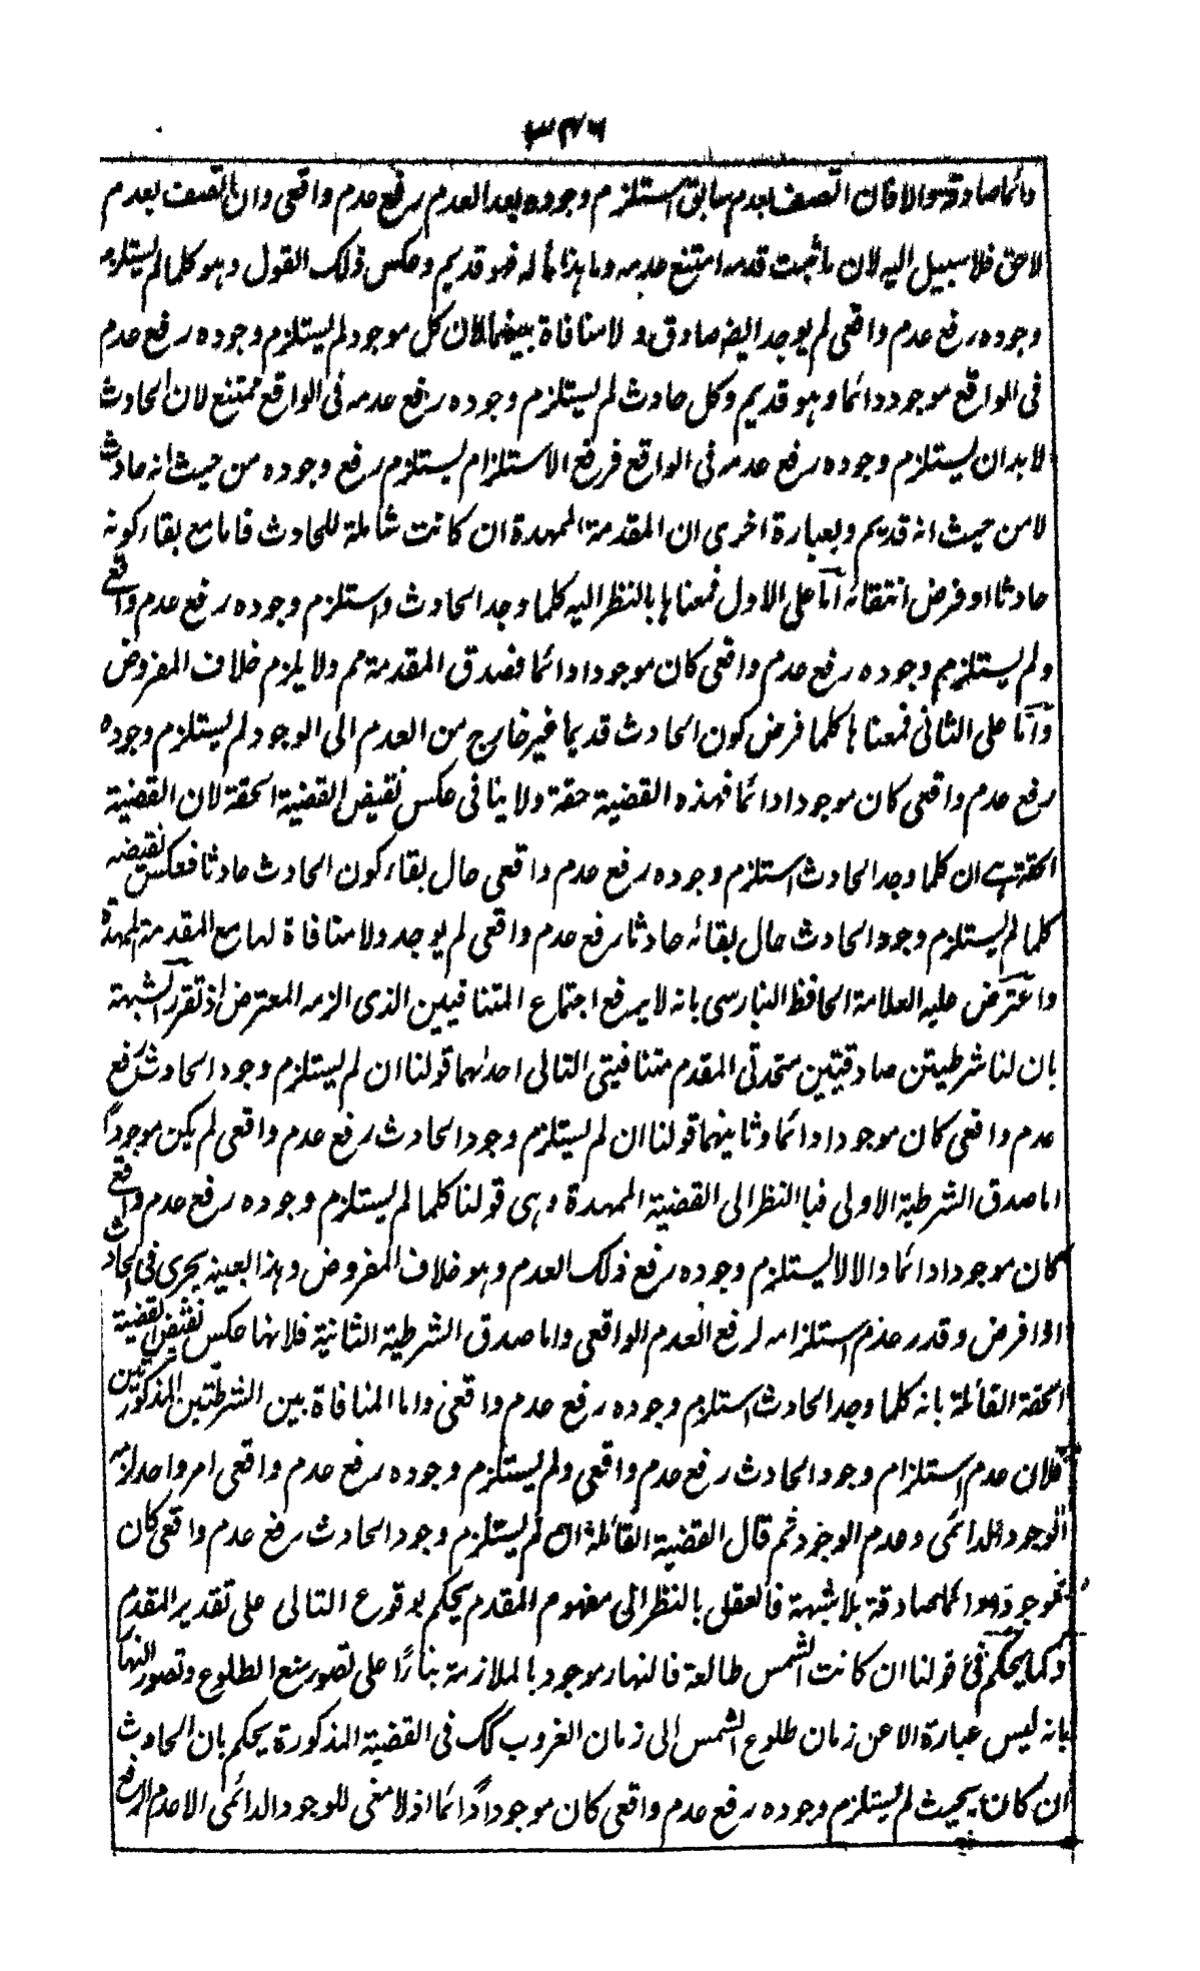 ٣٤٦
دائما صادقة والا فان اتصف بعدم سابق استلزم وجوده بعد العدم رفع عدم واقعى وان اتصف بعدم
لاحق فلا سبيل اليه لان ما ثبت قدمه امتنع عدمه وما هذا شأنه فهو قديم وعكس ذلك القول وهو كلما لم يستلزم
وجوده رفع عدم واقعى لم يوجد ايضا صادق ولا منافاة بينهما لان كل موجود لم يستلزم وجوده رفع عدم
فى الواقع موجود دائما وهو قديم وكل حادث لم يستلزم وجوده رفع عدمه فى الواقع ممتنع لان الحادث
لا بد ان يستلزم وجوده رفع عدمه فى الواقع فرفع الاستلزام يستلزم رفع وجوده من حيث انه حادث
لا من حيث انه قديم وبعبارة اخرى ان المقدمة الممهدة ان كانت شاملة للحادث فاما مع بقاء كونه
حادثا او فرض انتقائه اما على الاول فمعناها بالنظر اليه كلما وجد الحادث واستلزم وجوده رفع عدم واقعى
ولم يستلزم وجوده رفع عدم واقعى كان موجودا دائما فصدق المقدمة مم ولا يلزم خلاف المفروض
واما على الثانى فمعناها كلما فرض كون الحادث قديما غير خارج من العدم الى الوجود لم يستلزم وجوده
رفع عدم واقعى كان موجودا دائما فهذه القضية حقة ولا ينافى عكس نقيض القضية الحقة لان القضية
الحقة هى ان كلما وجد الحادث استلزم وجوده رفع عدم واقعى حال بقاء كون الحادث حادثا فعكس نقيضه
كلما لم يستلزم وجود الحادث حال بقائه حادثا رفع عدم واقعى لم يوجد ولا منافاة لها مع المقدمة الممهدة
واعترض عليه العلامة الحافظ البنارسى بانه لا يدفع اجتماع المتنافيين الذى الزمه المعترض اذ تقرر الشبهة
بان لنا شرطيتين صادقتين متحدتى المقدم متنافيتى التالى احدٰهما قولنا ان لم يستلزم وجود الحادث رفع
عدم واقعى كان موجودا دائما وثانيهما قولنا ان لم يستلزم وجود الحادث رفع عدم واقعى لم يكن موجودًا
اما صدق الشرطية الاولى فبالنظر الى القضية الممهدة وهى قولنا كلما لم يستلزم وجوده رفع عدم واقعى
كان موجودا دائما والا لا يستلزم وجوده رفع ذلك العدم وهو خلاف المفروض وهذا بعينه يجرى فى الحادث
اذا فرض وقدر عدم استلزامه لرفع العدم الواقعى واما صدق الشرطية الثانية فلانها عكس نقيض القضية
الحقة القائلة بانه كلما وجد الحادث استلزم وجوده رفع عدم واقعى واما المنافاة بين الشرطتين المذكورتين
فلان عدم استلزام وجود الحادث رفع عدم واقعى ولم يستلزم وجوده رفع عدم واقعى امر واحد لازمه
الوجود الدائمى وعدم الوجود ثم قال القضية القائلة ان لم يستلزم وجود الحادث رفع عدم واقعى كان
موجودا دائما صادقة بلا شبهة فالعقل بالنظر الى مفهوم المقدم يحكم بوقوع التالى على تقدير المقدم
وكما يحكم فى قولنا ان كانت الشمس طالعة فالنهار موجود بالملازمة بناءً على تصور منع الطلوع وتصور النهار
بانه ليس عبارة الا عن زمان طلوع الشمس الى زمان الغروب كك فى القضية المذكورة يحكم بان الحادث
ان كان بحيث لم يستلزم وجوده رفع عدم واقعى كان موجوداً دائما اذ لا معنى للوجود الدائمى الا عدم الرفع